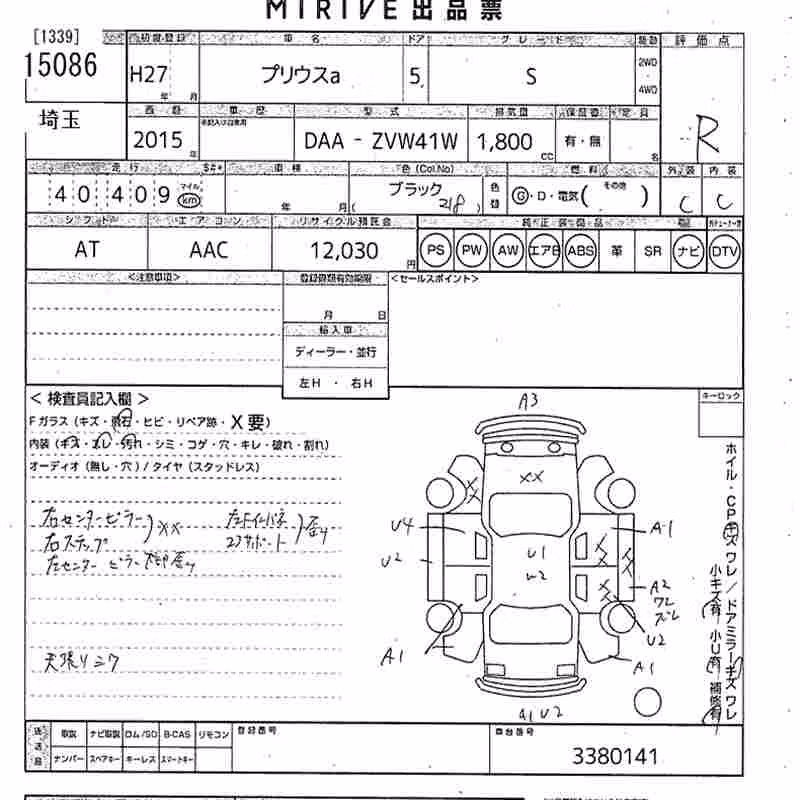 MIRIVE 出品票
[1339] 初度登録 車名 ドア グレード 駆動 評価点
15086 H27 年 月 プリウスa 5 S 2WD・4WD
R
埼玉 西暦 車歴 型式 排気量 保証書 定員
2015 年 DAA - ZVW41W 1,800 cc 有・無 名
走行 車検 色 (Col.No) 燃料 外装 内装
40409 マイル km 年 月 ブラック (218) 色替 G・D・電気 (その他) C C
シフト エアコン リサイクル預託金 純正装備品
AT AAC 12,030 円 PS PW AW エアB ABS 革 SR ナビ DTV
<注意事項> 登録書類有効期限 <セールスポイント>
月 日
輸入車
ディーラー・並行
左H ・ 右H
< 検査員記入欄 > キーロック
Fガラス (キズ・飛石・ヒビ・リペア跡・X要)
内装 (キズ・スレ・汚れ・シミ・コゲ・穴・キレ・破れ・割れ)
オーディオ (無し・穴) / タイヤ (スタッドレス)
右センターピラー
右ステップ ) XX
左センターピラー
天張りニク
A3
XX
U4
U2
U1
U2
A1
A1
A2
ワレ
ズレ
U2
A1
A1 U2
ホイル・CP キズ ワレ / ドアミラー キズ ワレ
小キズ有 小U有 補修有
後送品 取説 ナビ取説 ロム/SD B-CAS リモコン 登録番号 車台番号
ナンバー スペアキー キーレス スマートキー 3380141